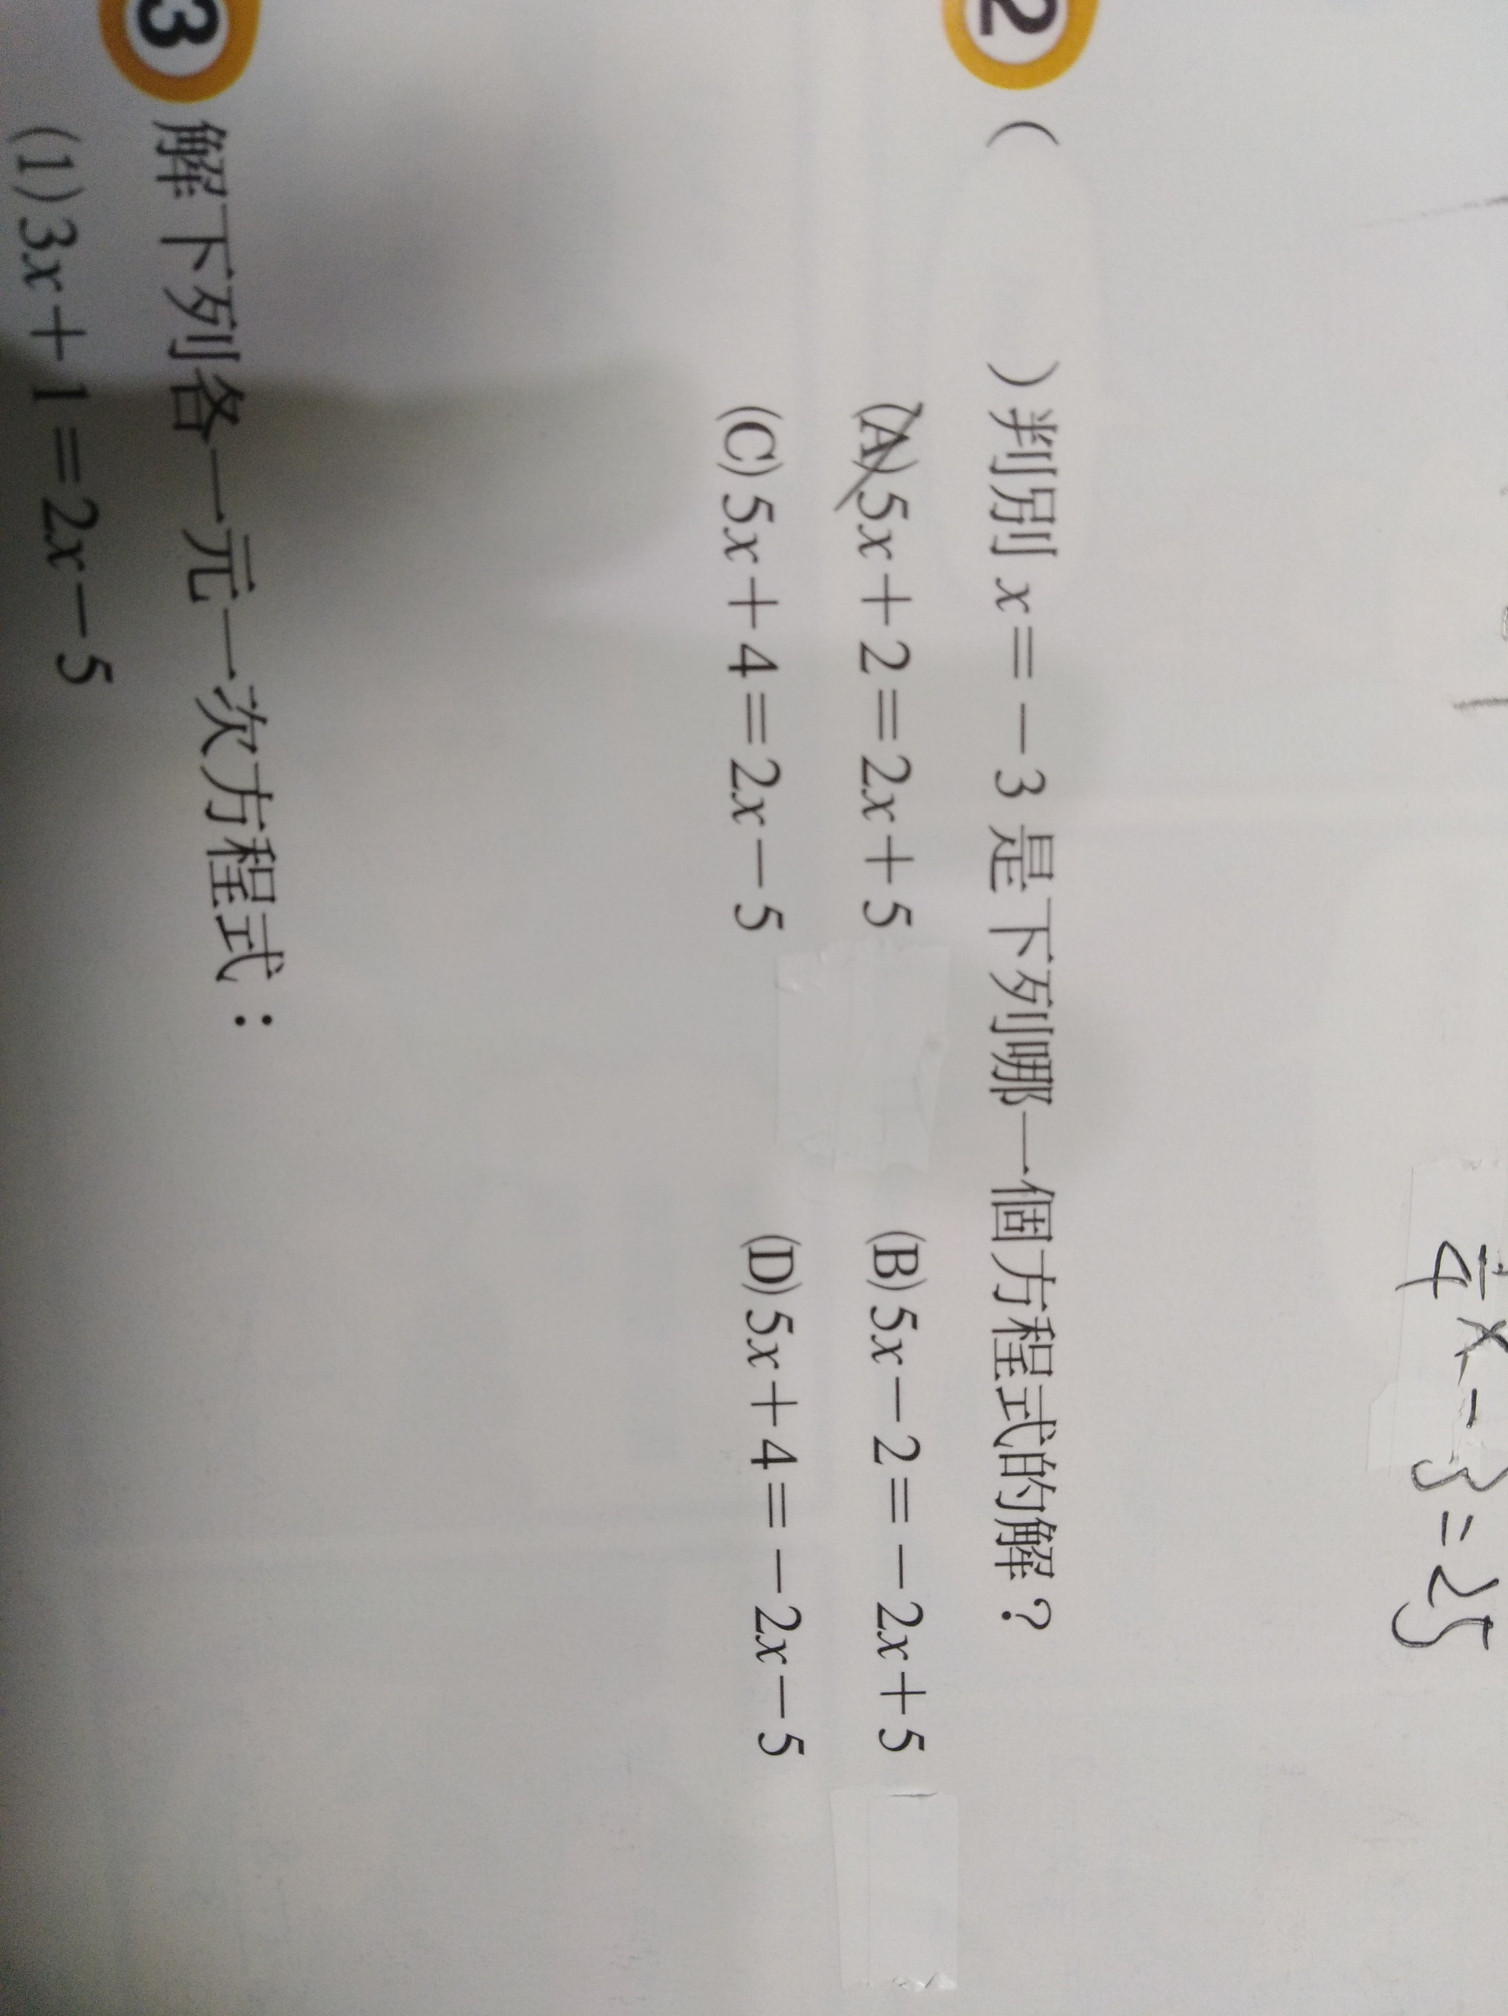 1/4 x - 3 = 25
2 (  )判別 x=-3 是下列哪一個方程式的解?
(A) 5x+2=2x+5 (B) 5x-2=-2x+5
(C) 5x+4=2x-5 (D) 5x+4=-2x-5
3 解下列各一元一次方程式:
(1) 3x+1=2x-5